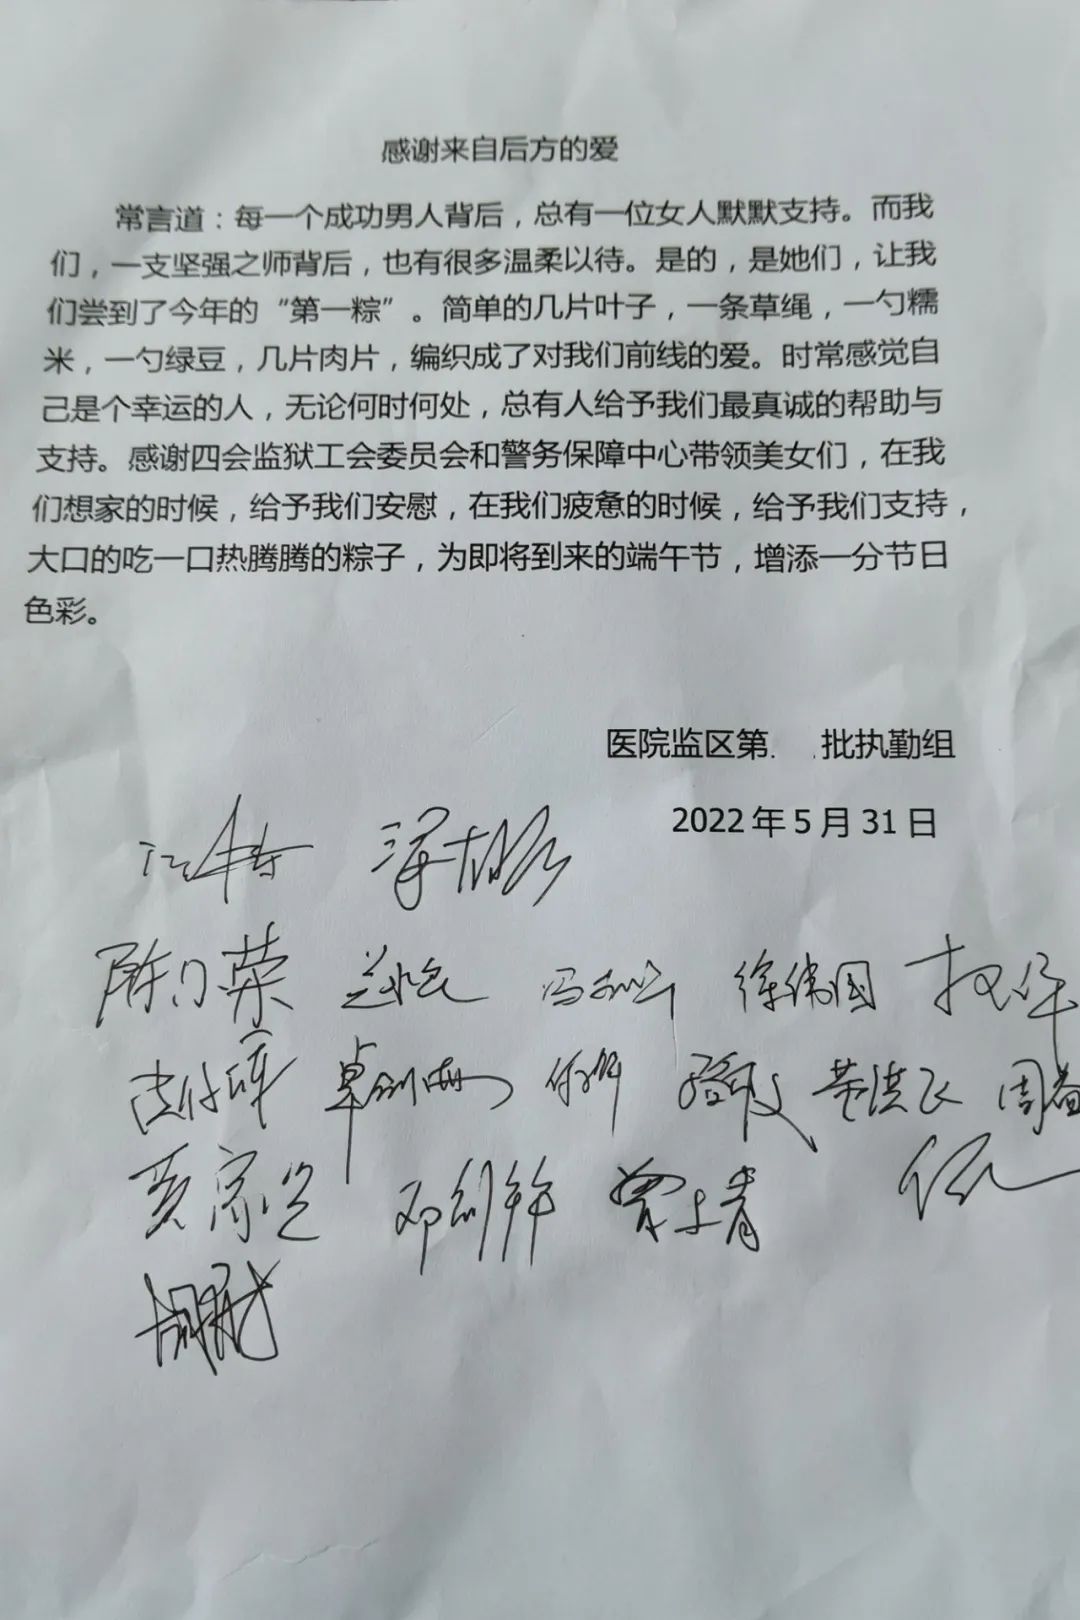 感谢来自后方的爱
常言道：每一个成功男人背后，总有一位女人默默支持。而我
们，一支坚强之师背后，也有很多温柔以待。是的，是她们，让我
们尝到了今年的“第一粽”。简单的几片叶子，一条草绳，一勺糯
米，一勺绿豆，几片肉片，编织成了对我们前线的爱。时常感觉自
己是个幸运的人，无论何时何处，总有人给予我们最真诚的帮助与
支持。感谢四会监狱工会委员会和警务保障中心带领美女们，在我
们想家的时候，给予我们安慰，在我们疲惫的时候，给予我们支持，
大口的吃一口热腾腾的粽子，为即将到来的端午节，增添一分节日
色彩。
医院监区第. .批执勤组
2022年5月31日
徐伟国
董洪飞